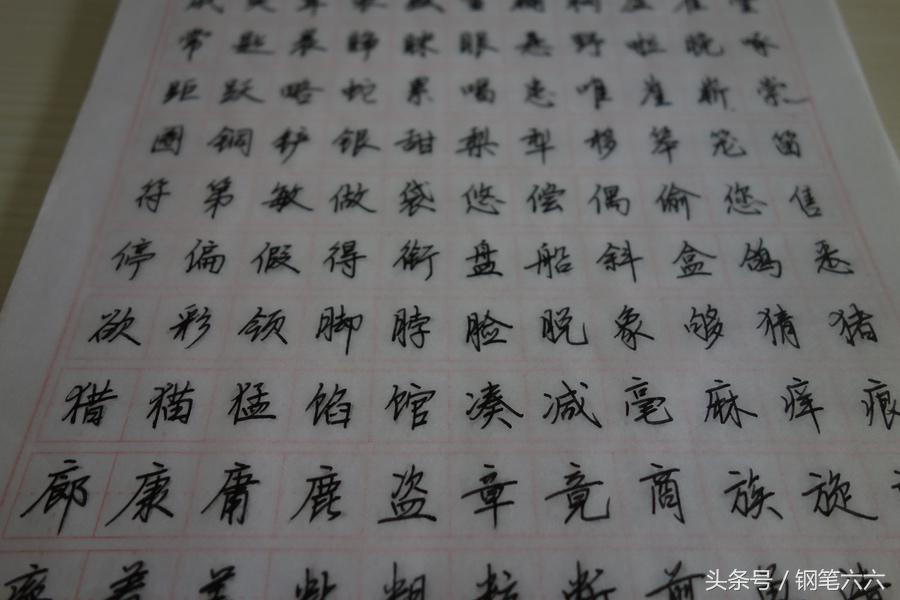 常 匙 晨 睁 眯 眼 悬 野 啦 晚 啄
距 跃 略 蛇 累 唱 患 唯 崖 崭 崇
圈 铜 铲 银 甜 梨 犁 移 笨 笼 笛
符 第 敏 做 袋 悠 偿 偶 偷 您 售
停 偏 假 得 衔 盘 船 斜 盒 鸽 悉
欲 彩 领 脚 脖 脸 脱 象 够 猜 猪
猎 猫 猛 馅 馆 凑 减 毫 麻 痒 痕
廊 康 庸 鹿 盗 章 竟 商 族 旋
着 盖 粘 粗 粒 断 剪
头条号 / 钢笔六六